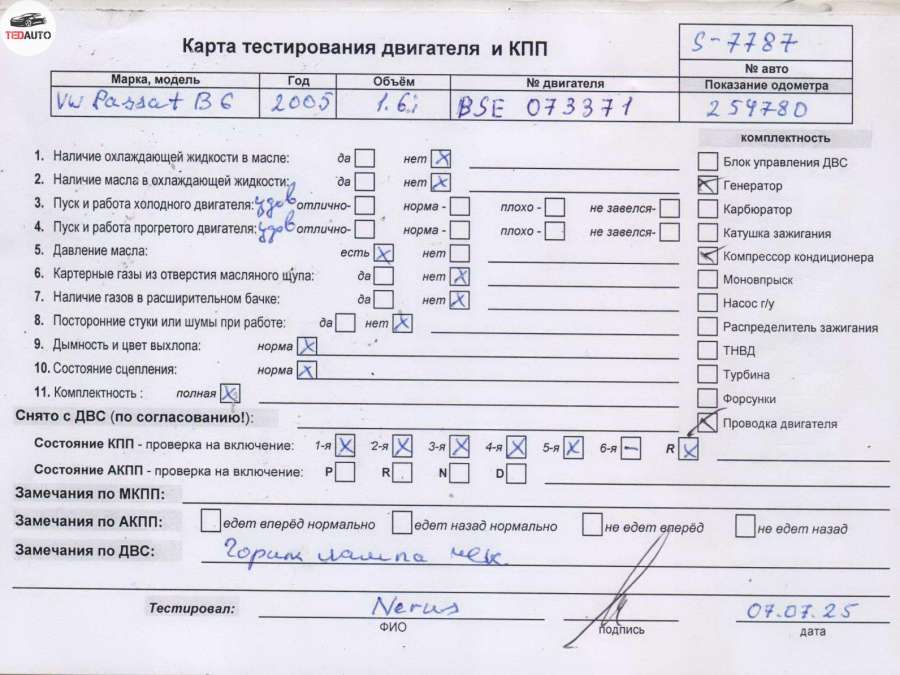 TEDAUTO
Карта тестирования двигателя и КПП
S-7787
№ авто
Марка, модель Год Объём № двигателя Показание одометра
VW Passat B6 2005 1.6i BSE 073371 254780
комплектность
1. Наличие охлаждающей жидкости в масле: да нет X
Блок управления ДВС
2. Наличие масла в охлаждающей жидкости: да нет X
Генератор
3. Пуск и работа холодного двигателя: удов отлично- норма - плохо - не завелся-
Карбюратор
4. Пуск и работа прогретого двигателя: удов отлично- норма - плохо - не завелся-
Катушка зажигания
5. Давление масла: есть X нет
Компрессор кондиционера
6. Картерные газы из отверстия масляного щупа: да нет X
Моновпрыск
7. Наличие газов в расширительном бачке: да нет X
Насос г/у
8. Посторонние стуки или шумы при работе: да нет X
Распределитель зажигания
9. Дымность и цвет выхлопа: норма X
ТНВД
10. Состояние сцепления: норма X
Турбина
11. Комплектность : полная X
Форсунки
Снято с ДВС (по согласованию!):
Проводка двигателя
Состояние КПП - проверка на включение: 1-я X 2-я X 3-я X 4-я X 5-я X 6-я - R X
Состояние АКПП - проверка на включение: P R N D
Замечания по МКПП:
Замечания по АКПП: едет вперёд нормально едет назад нормально не едет вперёд не едет назад
Замечания по ДВС: Горит лампа чек.
Тестировал: Nerus 07.07.25
ФИО подпись дата